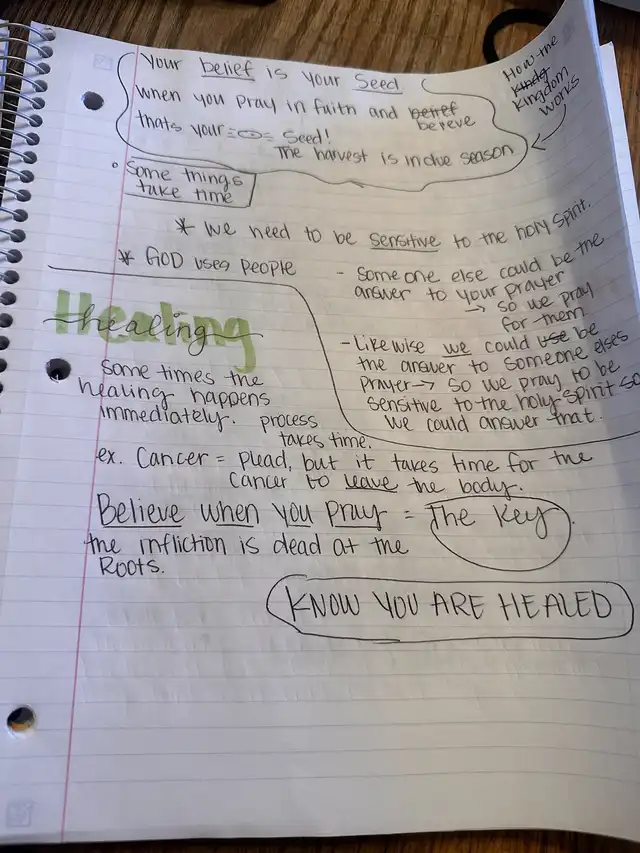 Your belief is your Seed
when you pray in faith and belief
bereve
thats your Seed!
The harvest is in due season
How the
Kingdom
works
Some things
take time
* We need to be sensitive to the holy spirit.
* GOD uses people
- Someone else could be the
answer to your prayer
→ so we pray
for them.
- Likewise we could use be
the answer to someone elses
prayer → so we pray to be
sensitive to the holy spirit so
we could answer that.
Healing
healing
Some times the
healing happens
immediately. process
takes time.
ex. Cancer = Dead, but it takes time for the
cancer to leave the body.
Believe when you pray = The Key.
the infliction is dead at the
Roots.
KNOW YOU ARE HEALED